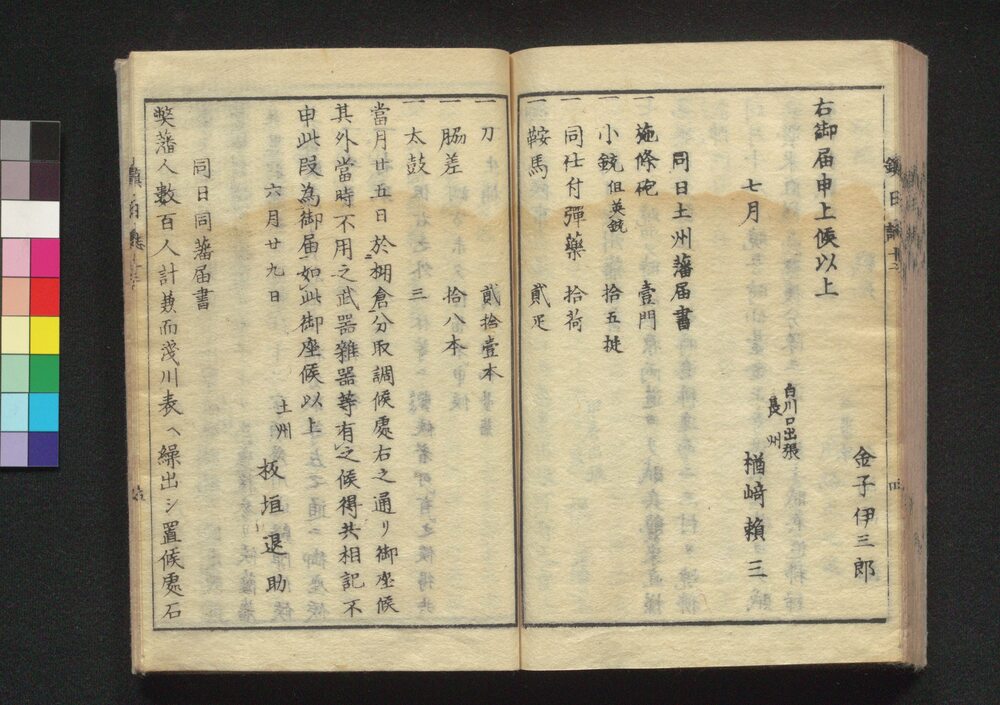 金子伊三郎
右御届申上候以上
七月
白川口出張
長州
楢﨑賴三
同日土州藩届書
一施條砲 壹門
一小銃 但英銃 拾五挺
一同仕付彈藥 拾荷
一鞍馬 貳疋
一刀 貳拾壹本
一脇差 拾八本
一太鼓 三
當月廿五日於棚倉分取調候處右之通リ御座候
其外當時不用之武器雜器等有之候得共相記不
申此段為御届如此御座候以上
六月廿九日
土州
板垣退助
同日同藩届書
弊藩人數百人計兼而淺川表ヘ繰出シ置候處石